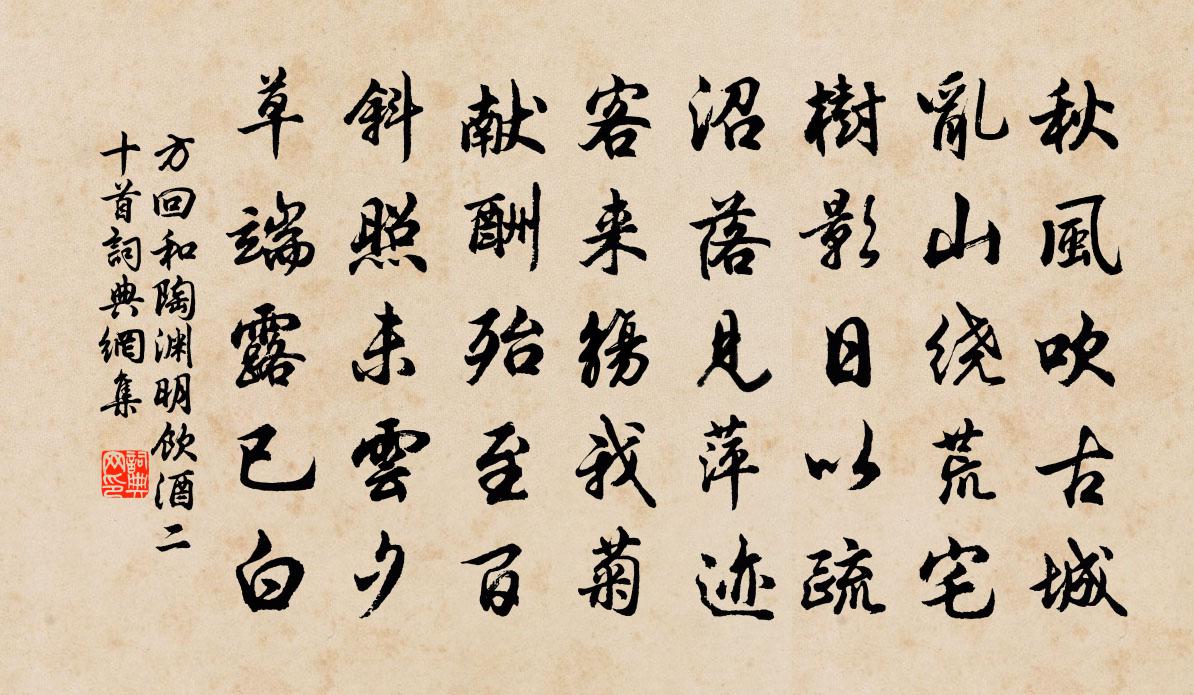 秋風吹古城
亂山绕荒宅
樹影日以疏
沼落見萍迹
客来觴我菊
献酬殆至百
斜照未雲夕
草端露已白
方回和陶渊明飲酒二
十首詞典網集
詞典
网印